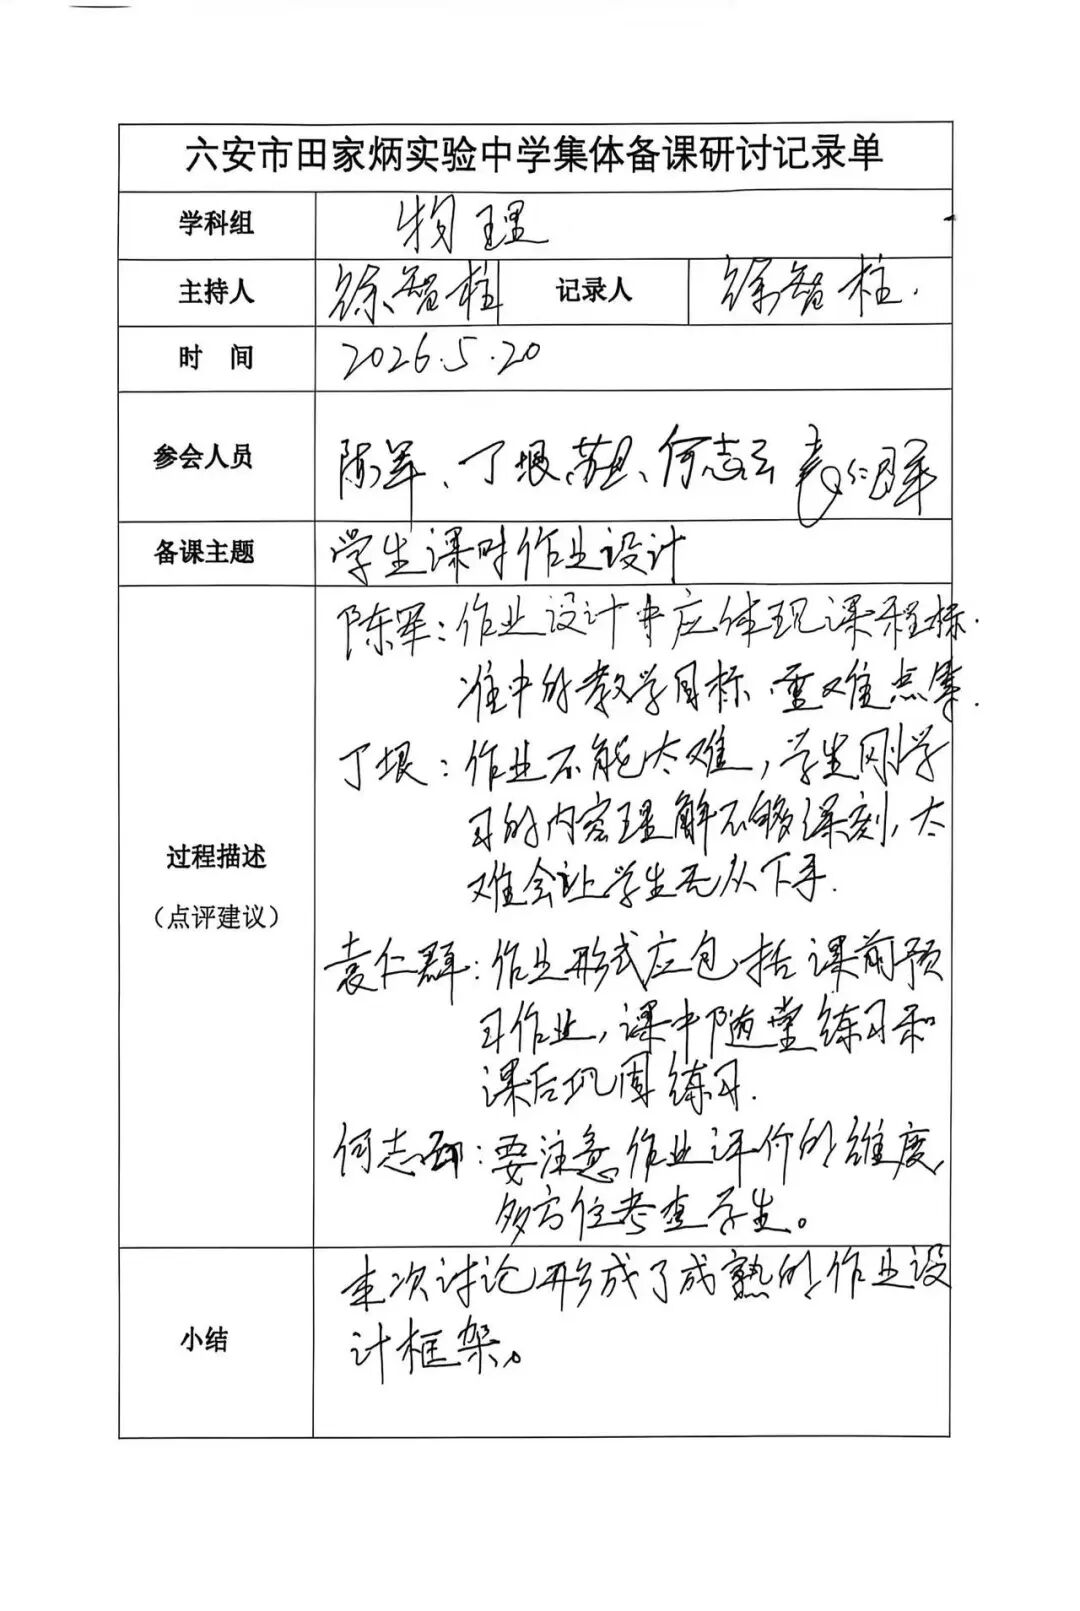 六安市田家炳实验中学集体备课研讨记录单
学科组 物理
主持人 徐智柱 记录人 徐智柱.
时 间 2026.5.20
参会人员 陈军、丁垠、 、何志云 袁仁群
备课主题 学生课时作业设计
陈军:作业设计中应体现课程标.
准中的教学目标.重难点等.
丁垠:作业不能太难,学生刚学
习的内容理解不够深刻,太
难会让学生无从下手.
过程描述
(点评建议)
袁仁群:作业形式应包括课前预
习作业,课中随堂练习和
课后巩固练习.
何志 :要注意作业评价的维度,
多方位考查学生。
小结
本次讨论形成了成熟的作业设
计框架。